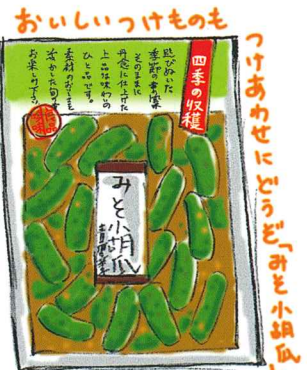 おいしいつけものも
つけあわせにどうぞ「みそ小胡瓜」
四季の収穫
選びぬいた
季節の素材を
そのままに
丹念に仕上げた
上品な味わいの
ひと品です。
素材のおいしさを
活かした旬の味を
お楽しみ下さい。
みそ小胡瓜